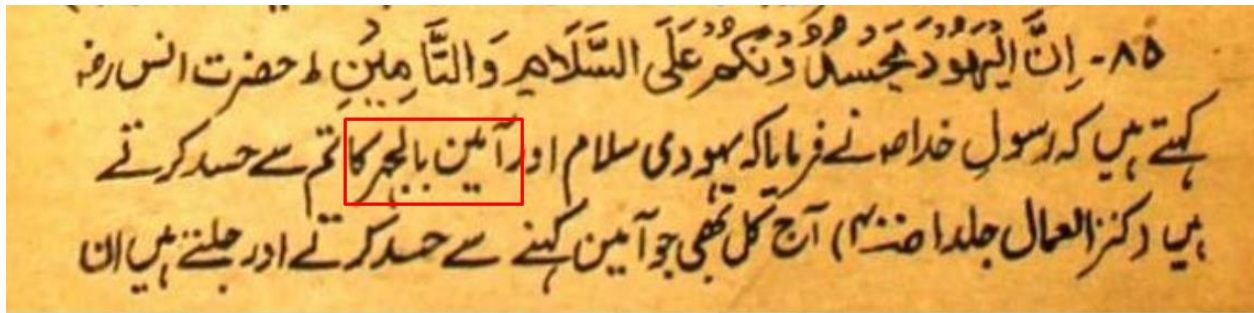 ۸۵۔ اِنَّ الْیَھُوْدَ یَحْسُدُوْنَکُمْ عَلَی السَّلَامِ وَ التَّأمِیْنِ ط حضرت انس رض
کہتے ہیں کہ رسولِ خدا ص نے فرمایا کہ یہودی سلام اور آمین بالجہر کا تم سے حسد کرتے
ہیں (کنز العمال جلد ۱) آج کل بھی جو آمین کہنے سے حسد کرتے اور جلتے ہیں ان